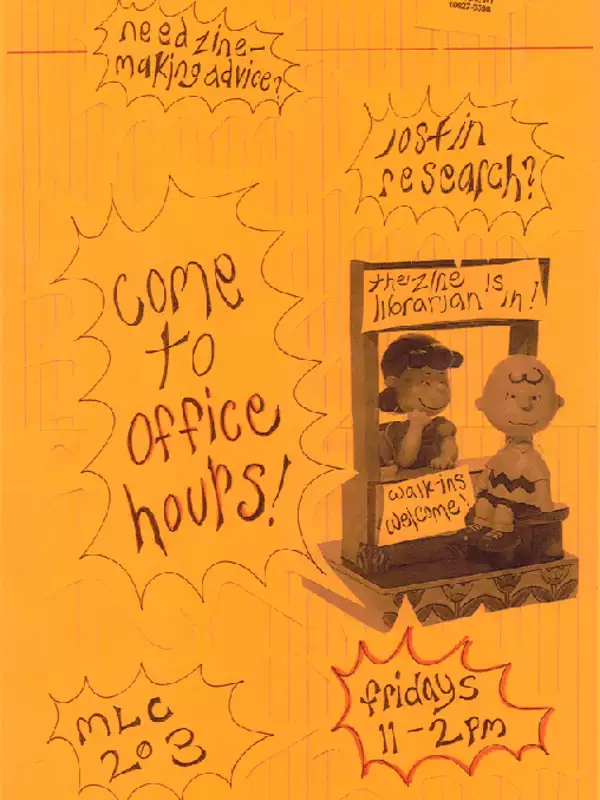 10027-6598
need zine-
making advice?
lost in
research?
the zine is
librarian in!
come
to
office
hours!
walk-ins
welcome!
fridays
11-2pm
MLC
203